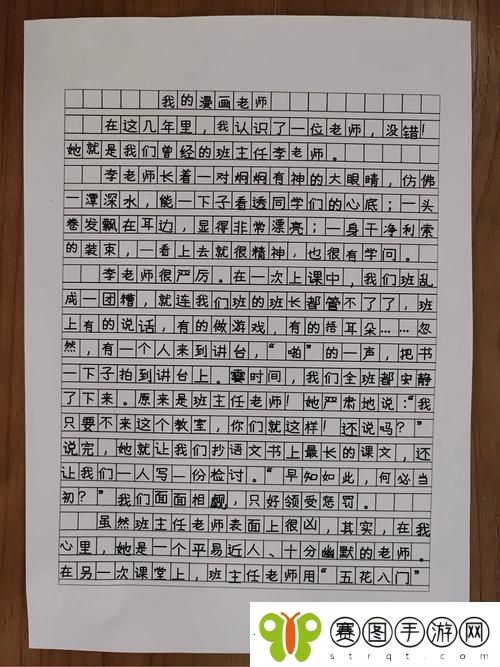 我的漫画老师
在这几年里，我认识了一位老师，没错！
她就是我们曾经的班主任李老师。
李老师长着一对炯炯有神的大眼睛，仿佛
一潭深水，能一下子看透同学们的心底；一头
卷发飘在耳边，显得非常漂亮；一身干净利索
的装束，一看上去就很精神，也很有学问。
李老师很严厉。在一次上课中，我们班乱
成一团糟，就连我们班的班长都管不了了，班
上有的说话，有的做游戏，有的捂耳朵……忽
然，有一个人来到讲台，“啪”的一声，把书
一下子拍到讲台上。霎时间，我们全班都安静
了下来。原来是班主任老师！她严肃地说：“我
只要不来这个教室，你们就这样！还说吗？”
说完，她就让我们抄语文书上最长的课文，还
让我们一人写一份检讨。“早知如此，何必当
初？”我们面面相觑，只好领受惩罚。
虽然班主任老师表面上很凶，其实，在我
心里，她是一个平易近人、十分幽默的老师。
在另一次课堂上，班主任老师用“五花八门”
赛图手游网
strqt.com